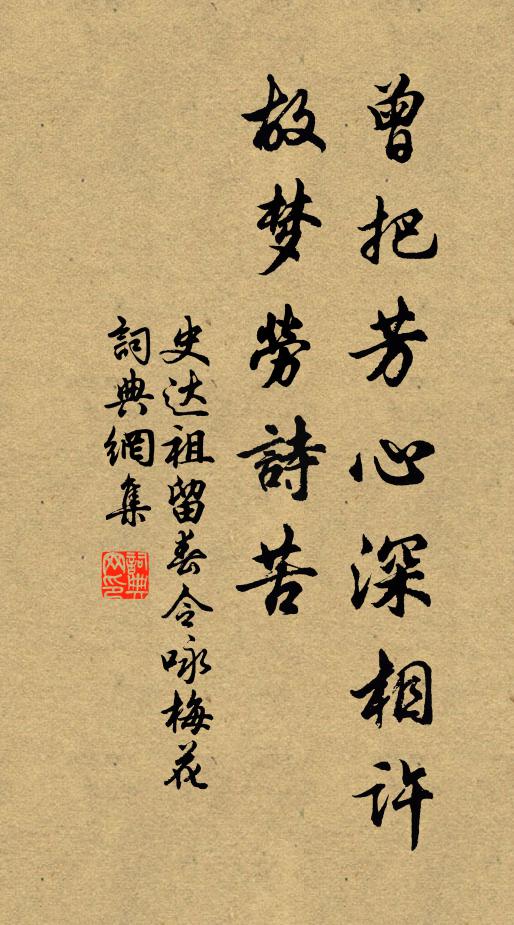 曾把芳心深相许
故梦劳詩苦
史达祖留春令咏梅花
詞典網集
詞典网印